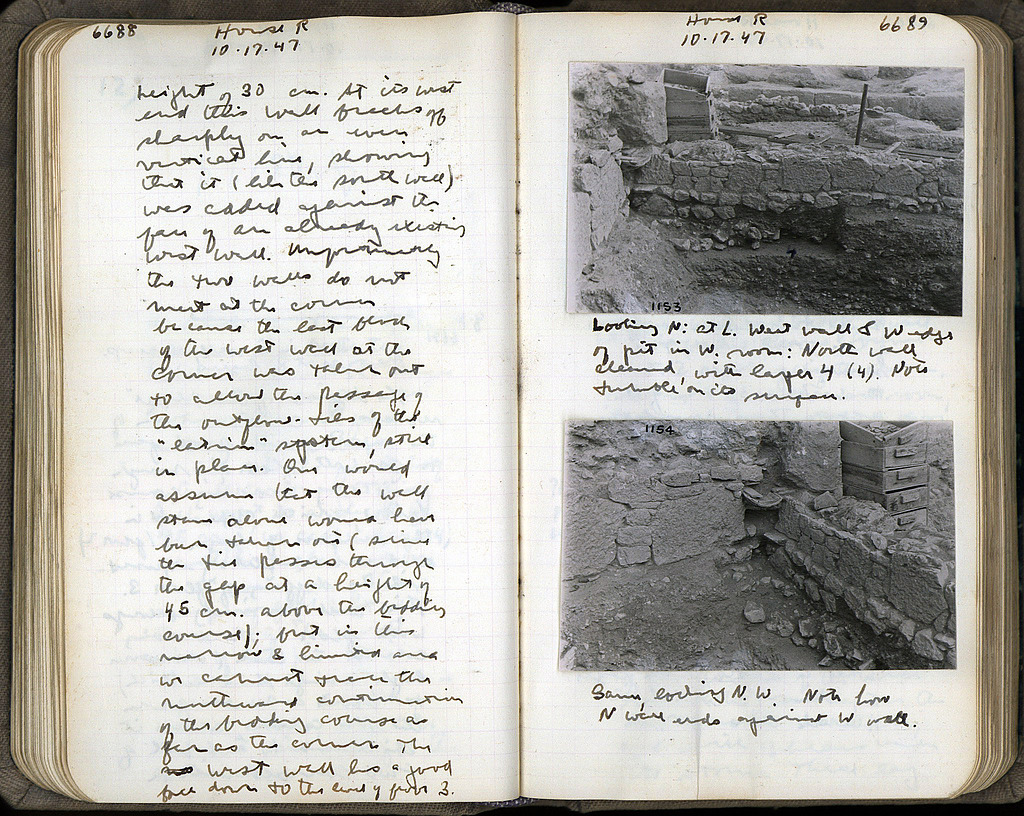 6688
House R
10-17-47
height of 30 cm. At its west
end this wall breaks off
sharply on an even
vertical line, showing
that it (like the south wall)
was added against the
face of an already existing
west wall. Unfortunately
the two walls do not
meet at the corner
because the last block
of the west wall at the
corner was taken out
to allow the passage of
the outflow tiles of the
"latrine" system, still
in place. One would
assume that the wall
stone alone would have
been taken out (since
the tile passes through
the gap at a height of
45 cm. above the bedding
course); but in this
narrow & limited area
we cannot trace the
northward continuation
of the bedding course as
far as the corner. The
west wall has a good
face down to the level of floor 3.
6689
House R
10-17-47
1153
Looking N: at L. West wall & W edge
of pit in W. room: North wall
cleaned with layer 4 (4). Note
tumble on its surface.
1154
Same, looking N.W. Note how
N wall ends against W wall.